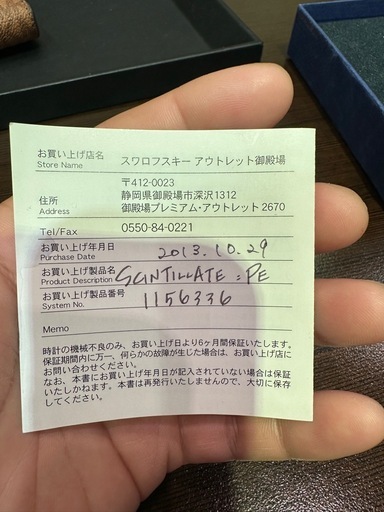 お買い上げ店名 スワロフスキー アウトレット御殿場
Store Name
〒412-0023
住所 静岡県御殿場市深沢1312
Address 御殿場プレミアム・アウトレット 2670
Tel/Fax 0550-84-0221
お買い上げ年月日 2013.10.29
Purchase Date
お買い上げ製品名 SCINTILLATE : PE
Product Description
お買い上げ製品番号 1156336
System No.
Memo
時計の機械不良のみ、お買い上げ日より6ヶ月間保証いたします。
保証期間内に万一、何らかの故障が生じた場合は、お買い上げ店に
お問い合わせください。
なお、本書にお買い上げ年月日が記入されていない場合は保証
いたしかねます。本書は再発行いたしませんので、大切に保存
してください。